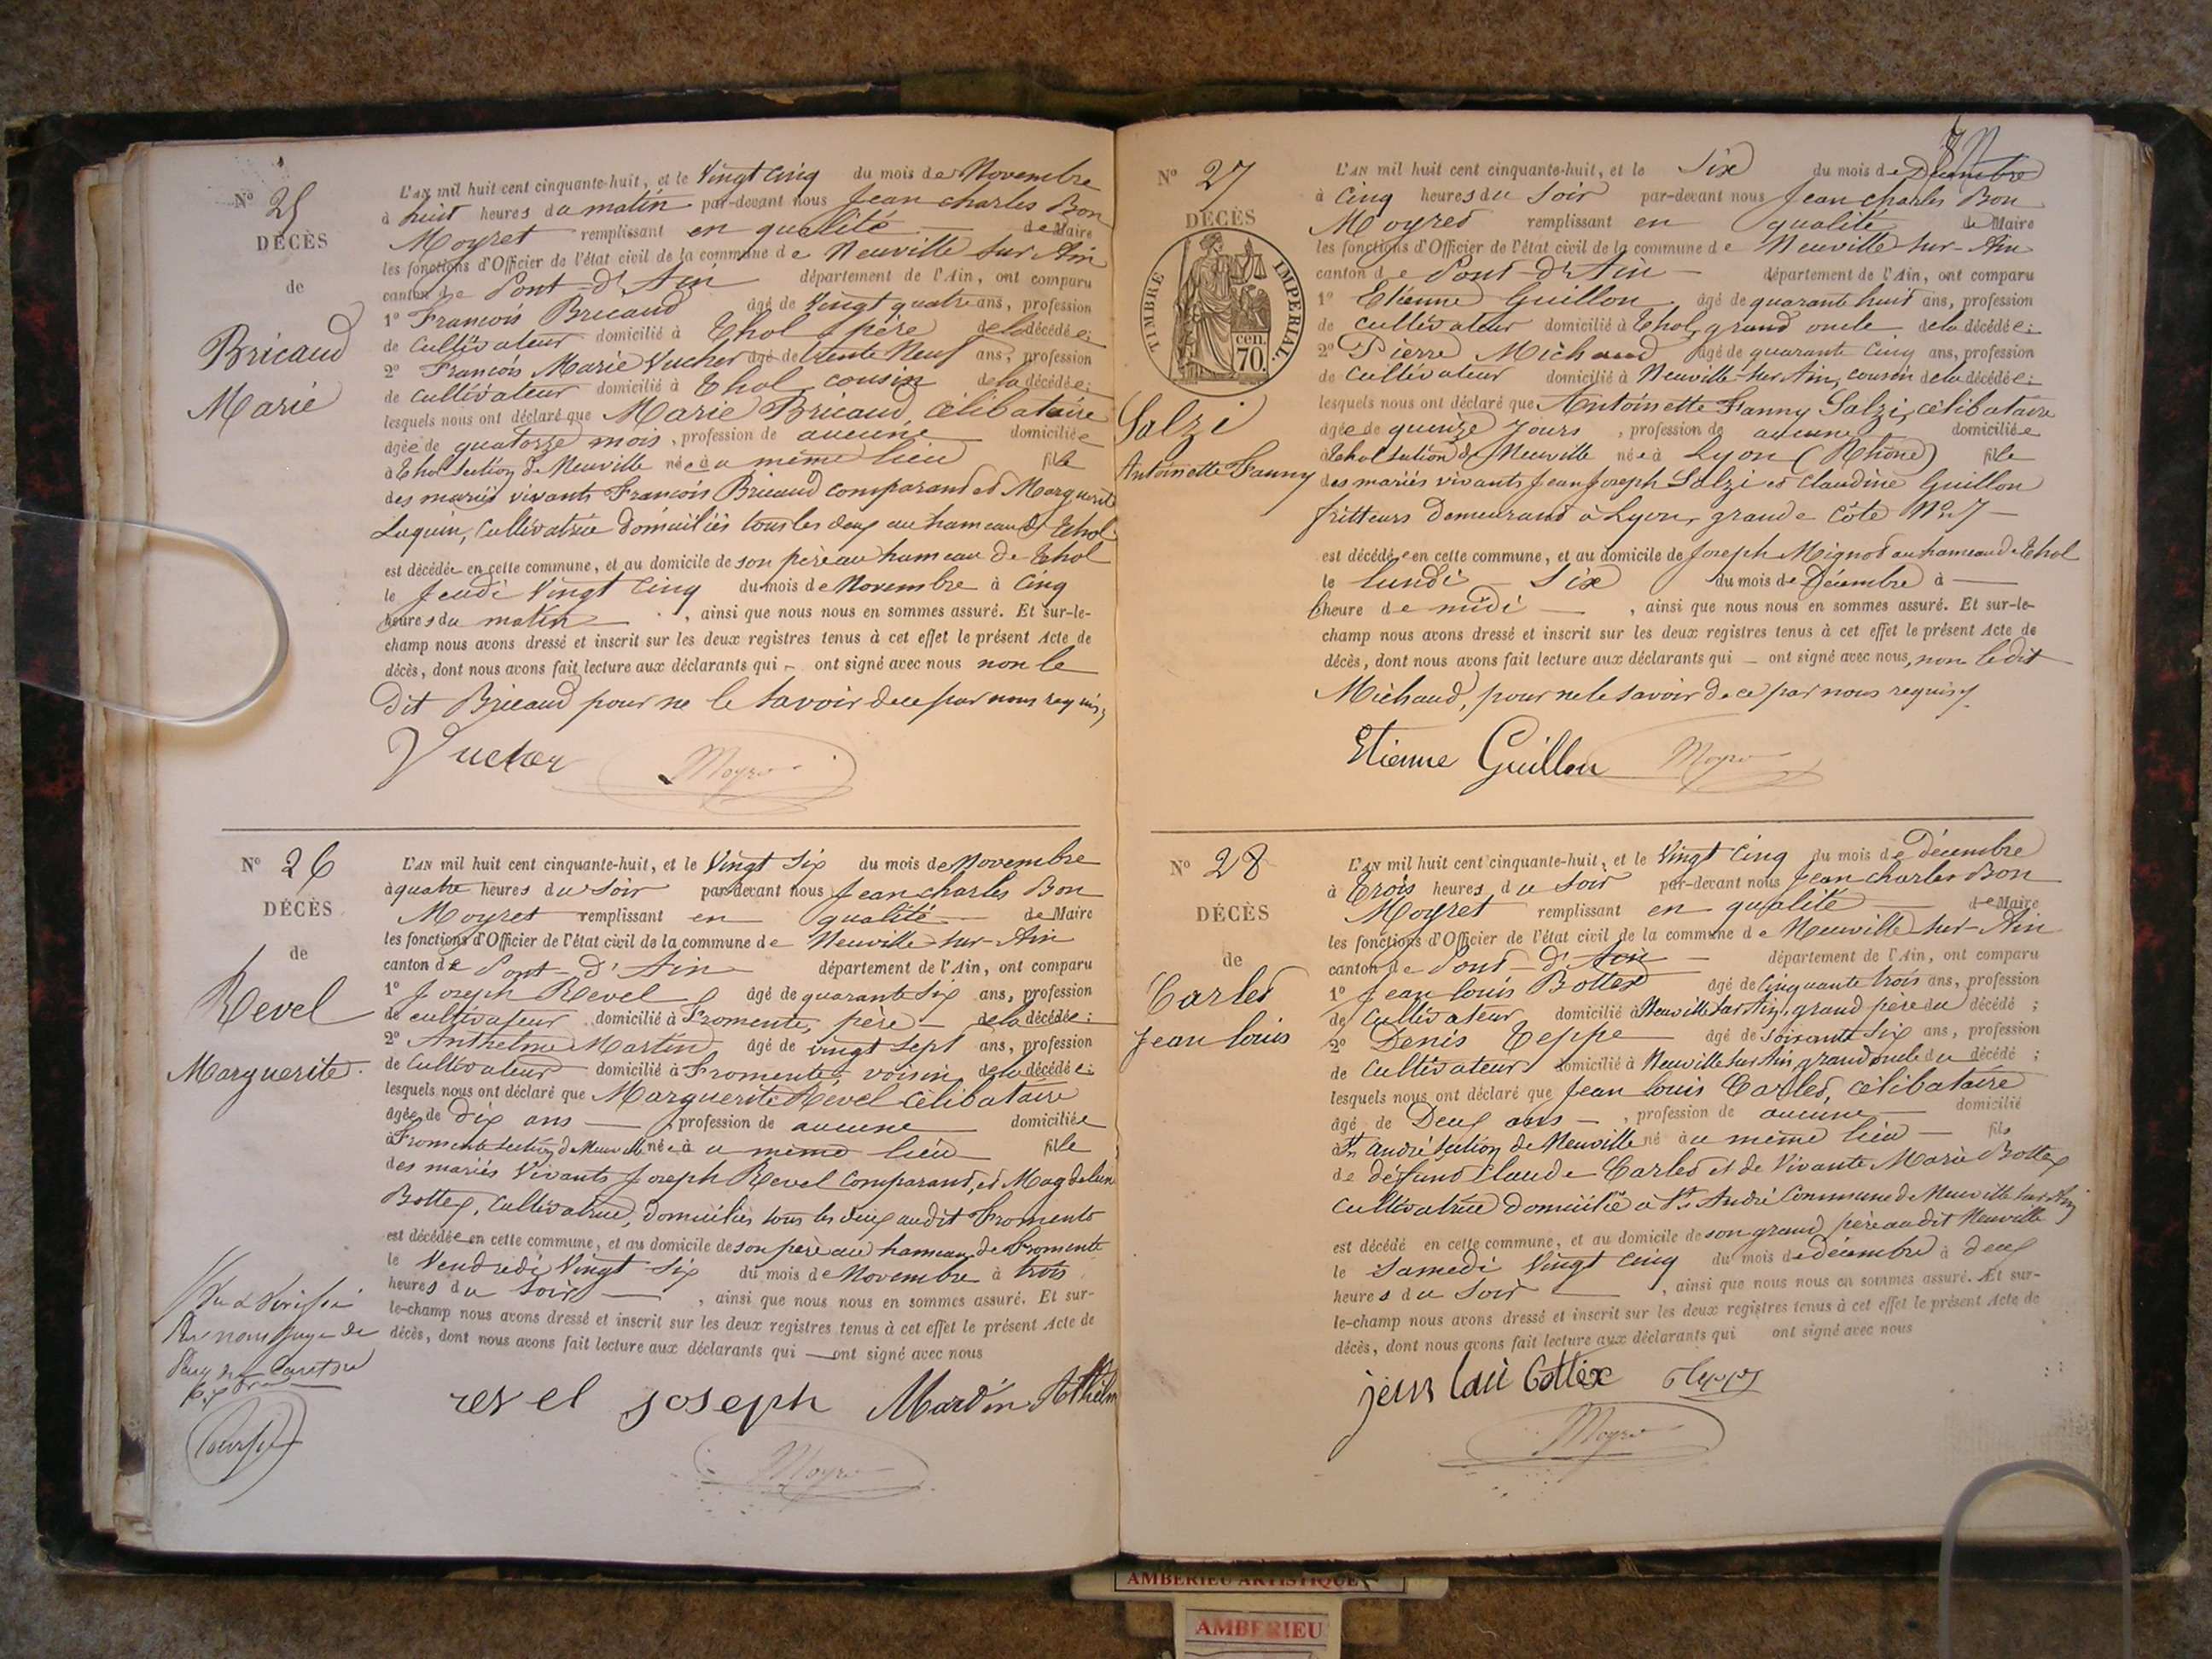 N° 25
DÉCÈS
de
Bricaud
Marie
L'AN mil huit cent cinquante-huit, et le Vingt cinq du mois de Novembre
à huit heures du matin par-devant nous Jean charles Bon
Moyret remplissant en qualité de Maire
les fonctions d'Officier de l'état civil de la commune de Neuville sur Ain
canton de Pont-d'Ain département de l'Ain, ont comparu
1° Francois Bricaud âgé de Vingt quatre ans, profession
de Cultivateur domicilié à Thol père de la décédée;
2° Francois Marie Vucher âgé de trente Neuf ans, profession
de cultivateur domicilié à Thol, cousin de la décédée;
lesquels nous ont déclaré que Marie Bricaud, célibataire
âgée de quatorze mois, profession de aucune domiciliée
à Thol section de Neuville née à u même lieu fille
des mariés vivants Francois Bricaud comparant et Marguerite
Luquin, Cultivatrice domiciliés tous les deux au hameau de Thol
est décédée en cette commune, et au domicile de son père au hameau de Thol
le Jeudi Vingt Cinq du mois de Novembre à Cinq
heures du matin, ainsi que nous nous en sommes assuré. Et sur-le-
champ nous avons dressé et inscrit sur les deux registres tenus à cet effet le présent Acte de
décès, dont nous avons fait lecture aux déclarants qui - ont signé avec nous non le
dit Bricaud pour ne le savoir de ce par nous requis;
Vucher Moyret
N° 26
DÉCÈS
de
Revel
Marguerite
L'AN mil huit cent cinquante-huit, et le Vingt Six du mois de Novembre
à quatre heures du Soir par-devant nous Jean charles Bon
Moyret remplissant en qualité de Maire
les fonctions d'Officier de l'état civil de la commune de Neuville-sur-Ain
canton de Pont-d'Ain département de l'Ain, ont comparu
1° Joseph Revel âgé de quarante Six ans, profession
de cultivateur domicilié à Fromente, père de la décédée;
2° Anthelme Martin âgé de vingt Sept ans, profession
de Cultivateur domicilié à Fromente, voisin de la décédée;
lesquels nous ont déclaré que Marguerite Revel Célibataire
âgée de Dix ans, profession de aucune domiciliée
à Fromente section de Neuville née à u même lieu fille
des mariés Vivants Joseph Revel Comparant, et Magdelein
Bottex, Cultivatrice, domiciliés tous les deux audit Fromente
est décédée en cette commune, et au domicile de son père au hameau de Fromente
le Vendredi Vingt Six du mois de Novembre à trois
heures du Soir, ainsi que nous nous en sommes assuré. Et sur-
le-champ nous avons dressé et inscrit sur les deux registres tenus à cet effet le présent Acte de
décès, dont nous avons fait lecture aux déclarants qui - ont signé avec nous
revel joseph Martin Athelm
Moyret
Vu & Vérifié
Par nous Juge de
Paix du Canton
N° 27
DÉCÈS
TIMBRE IMPERIAL.
cen.
70.
Salzi
Antoinette Fanny
L'AN mil huit cent cinquante-huit, et le Six du mois de Décembre
à Cinq heures du Soir par-devant nous Jean charles Bon
Moyret remplissant en qualité de Maire
les fonctions d'Officier de l'état civil de la commune de Neuville-sur-Ain
canton de Pont-d'Ain département de l'Ain, ont comparu
1° Etienne Guillon, âgé de quarante huit ans, profession
de cultivateur domicilié à Thol, grand oncle de la décédée;
2° Pierre Michaud âgé de quarante Cinq ans, profession
de Cultivateur domicilié à Neuville-sur-Ain, cousin de la décédée;
lesquels nous ont déclaré que Antoinette Fanny Salzi, célibataire
âgée de quinze Jours, profession de aucune domiciliée
à Thol section de Neuville née à Lyon (Rhône) fille
des mariés vivants Jean Joseph Salzi et Claudine Guillon
fritteurs Demeurant à Lyon, grande Côte N°
est décédée en cette commune, et au domicile de Joseph Mignot au hameau de Thol
le lundi Six du mois de Décembre à
l'heure de midi, ainsi que nous nous en sommes assuré. Et sur-le-
champ nous avons dressé et inscrit sur les deux registres tenus à cet effet le présent Acte de
décès, dont nous avons fait lecture aux déclarants qui - ont signé avec nous, non ledit
Michaud, pour ne le savoir de ce par nous requis.
Etienne Guillon Moyret
N° 28
DÉCÈS
de
Carlet
Jean louis
L'AN mil huit cent cinquante-huit, et le Vingt Cinq du mois de Décembre
à Trois heures du Soir par-devant nous Jean charles Bon
Moyret remplissant en qualité de Maire
les fonctions d'Officier de l'état civil de la commune de Neuville-sur-Ain
canton de Pont-d'Ain département de l'Ain, ont comparu
1° Jean louis Bottex âgé de Cinquante trois ans, profession
de Cultivateur domicilié à Neuville sur Ain, grand père du décédé;
2° Denis Teppe âgé de Soixante Six ans, profession
de Cultivateur domicilié à Neuville sur Ain grand oncle du décédé;
lesquels nous ont déclaré que Jean Louis Carlet, célibataire
âgé de Deux ans, profession de aucune domicilié
à St. andré section de Neuville né à u même lieu fils
de défunt Claude Carlet et de Vivante Marie Bottex
Cultivatrice domiciliée à St. André Commune de Neuville sur Ain
est décédé en cette commune, et au domicile de son grand père audit Neuville
le Samedi Vingt Cinq du mois de décembre à deux
heures du Soir, ainsi que nous nous en sommes assuré. Et sur-
le-champ nous avons dressé et inscrit sur les deux registres tenus à cet effet le présent Acte de
décès, dont nous avons fait lecture aux déclarants qui ont signé avec nous
jean laui bottex
Moyret
AMBERIEU ARTISTIQUE
AMBERIEU